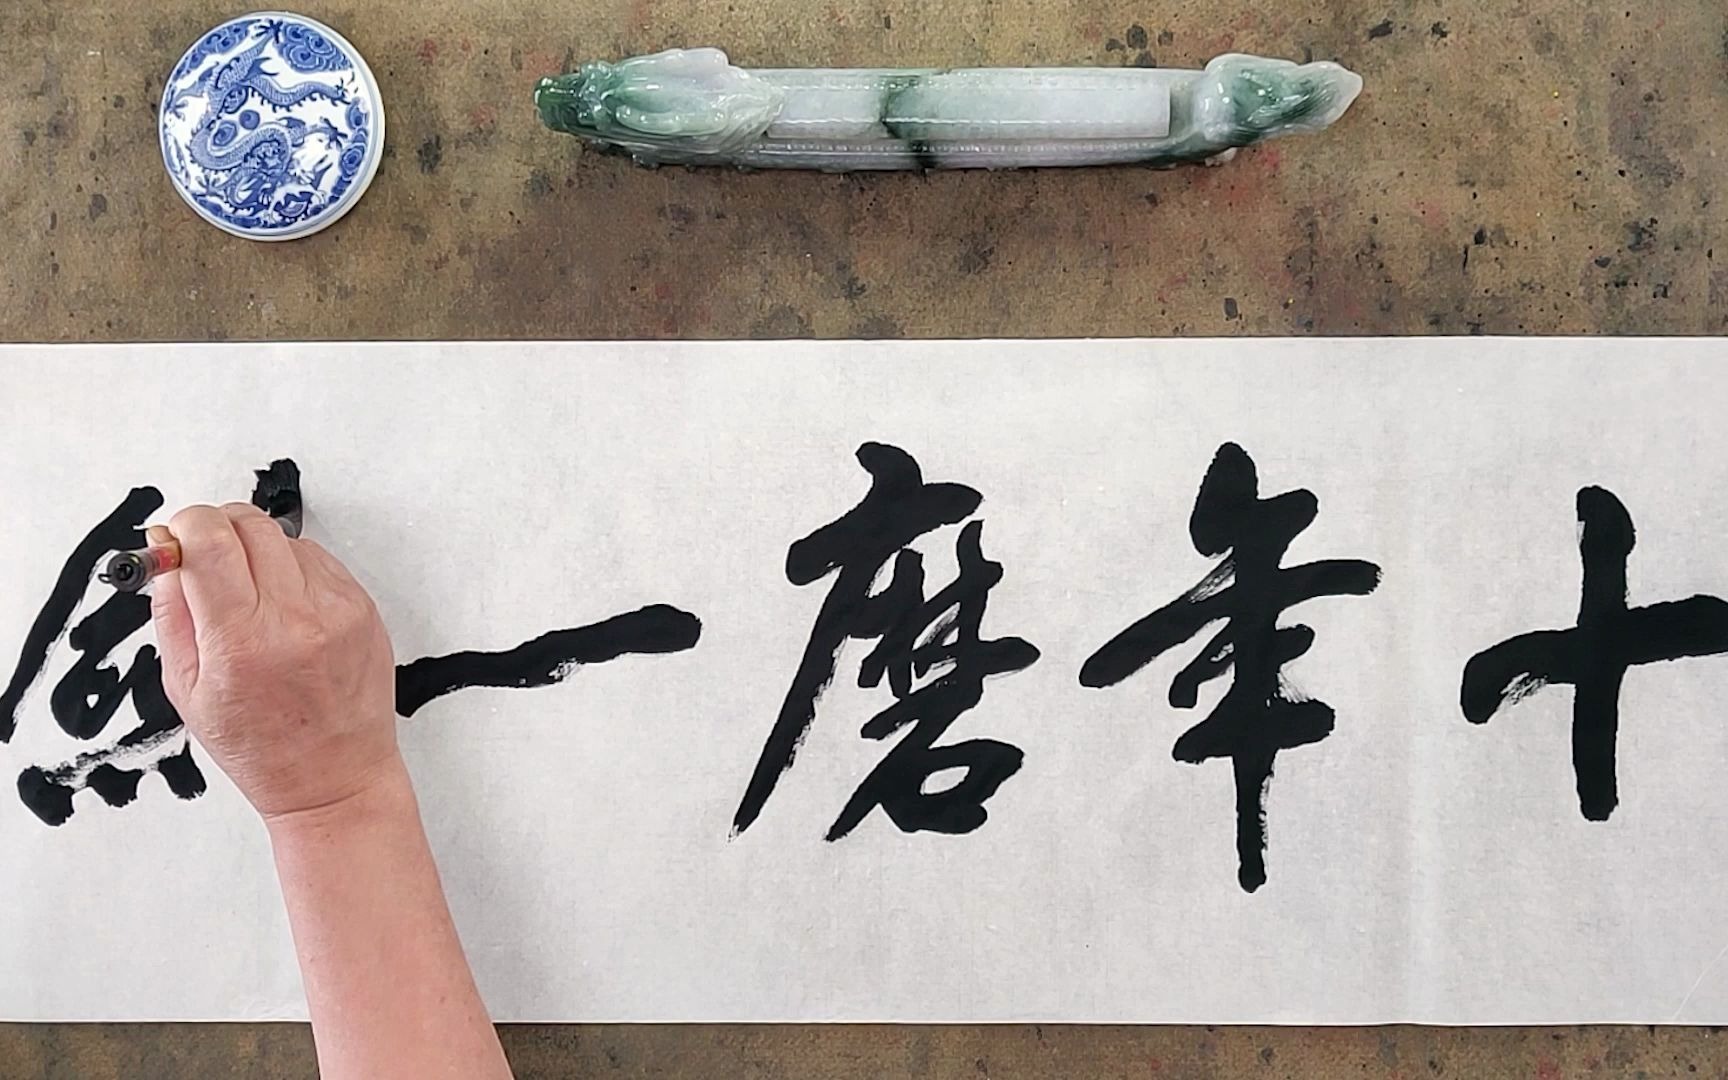 十年磨一劍